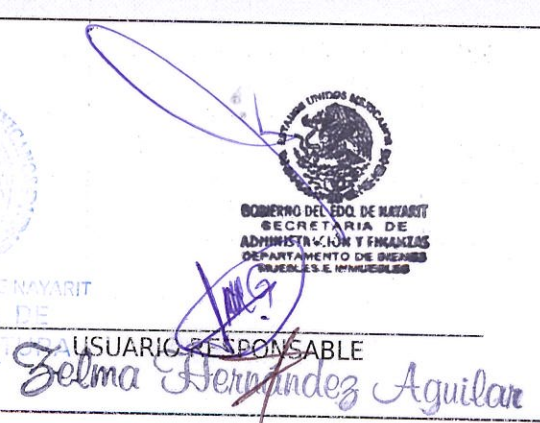 ESTADOS UNIDOS MEXICANOS
GOBIERNO DEL EDO. DE NAYARIT
SECRETARIA DE
ADMINISTRACION Y FINANZAS
DEPARTAMENTO DE BIENES
MUEBLES E INMUEBLES
NAYARIT
DE
USUARIO RESPONSABLE
Zelma Hernandez Aguilar